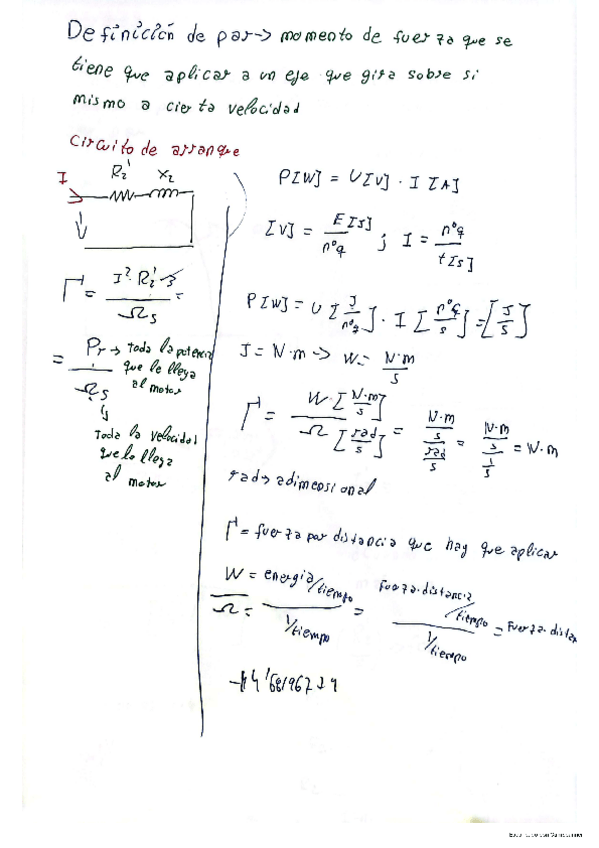 Definición de par → momento de fuerza que se
tiene que aplicar a un eje que gira sobre si
mismo a cierta velocidad
Circuito de arranque
I R₂' X₂
Γ = I²·R₂'·3 / Ωs =
= Pr → toda la potencia
que le llega
al motor
Ωs
toda la velocidad
que le llega
al motor
P[W] = U[V] · I [A]
[V] = E[J] / nºq ; I = nºq / t[s]
P[W] = U [J/nºq] · I [nºq/s] = [J/s]
J = N·m → W = N·m/s
Γ = W·[N·m/s] / Ω [rad/s] = N·m/s / rad/s = N·m/s / 1/s = N·m
rad → adimesional
Γ = fuerza por distancia que hay que aplicar
W/Ω = energia/tiempo / 1/tiempo = Fuerza·distancia/tiempo / 1/tiempo = Fuerza·distan